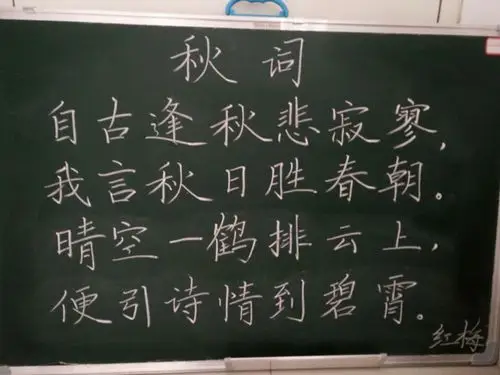 秋词
自古逢秋悲寂寥,
我言秋日胜春朝。
晴空一鹤排云上,
便引诗情到碧霄。
红梅